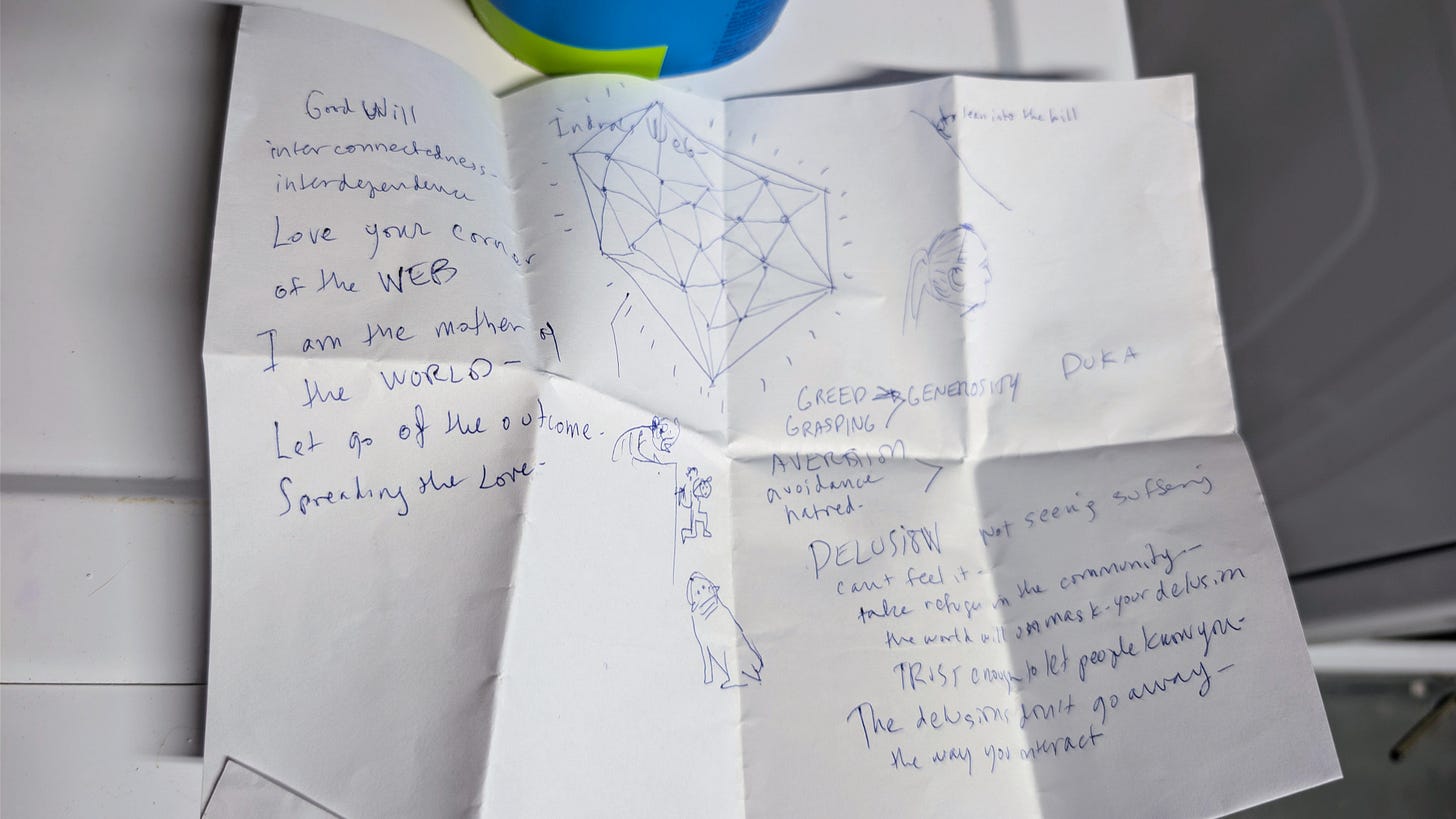 Good Will
interconnectedness-
interdependence
Love your corner
of the WEB
I am the mother of
the WORLD-
Let go of the outcome.
Spreading the Love-
Indras Web-
lean into the hill
DUKA
GREED → GENEROSITY
GRASPING
AVERSION
avoidance
hatred.
DELUSION Not seeing suffering
can't feel it-
take refuge in the community-
the world will unmask-your delusion
TRUST enough to let people know you-
The delusions don't go away-
the way you interact